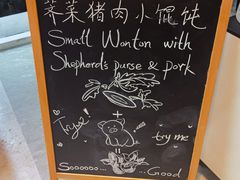 荠菜猪肉小馄饨
Small Wonton with
Shepherd's purse & pork
Try us!
try me
Soooooo...
...Good